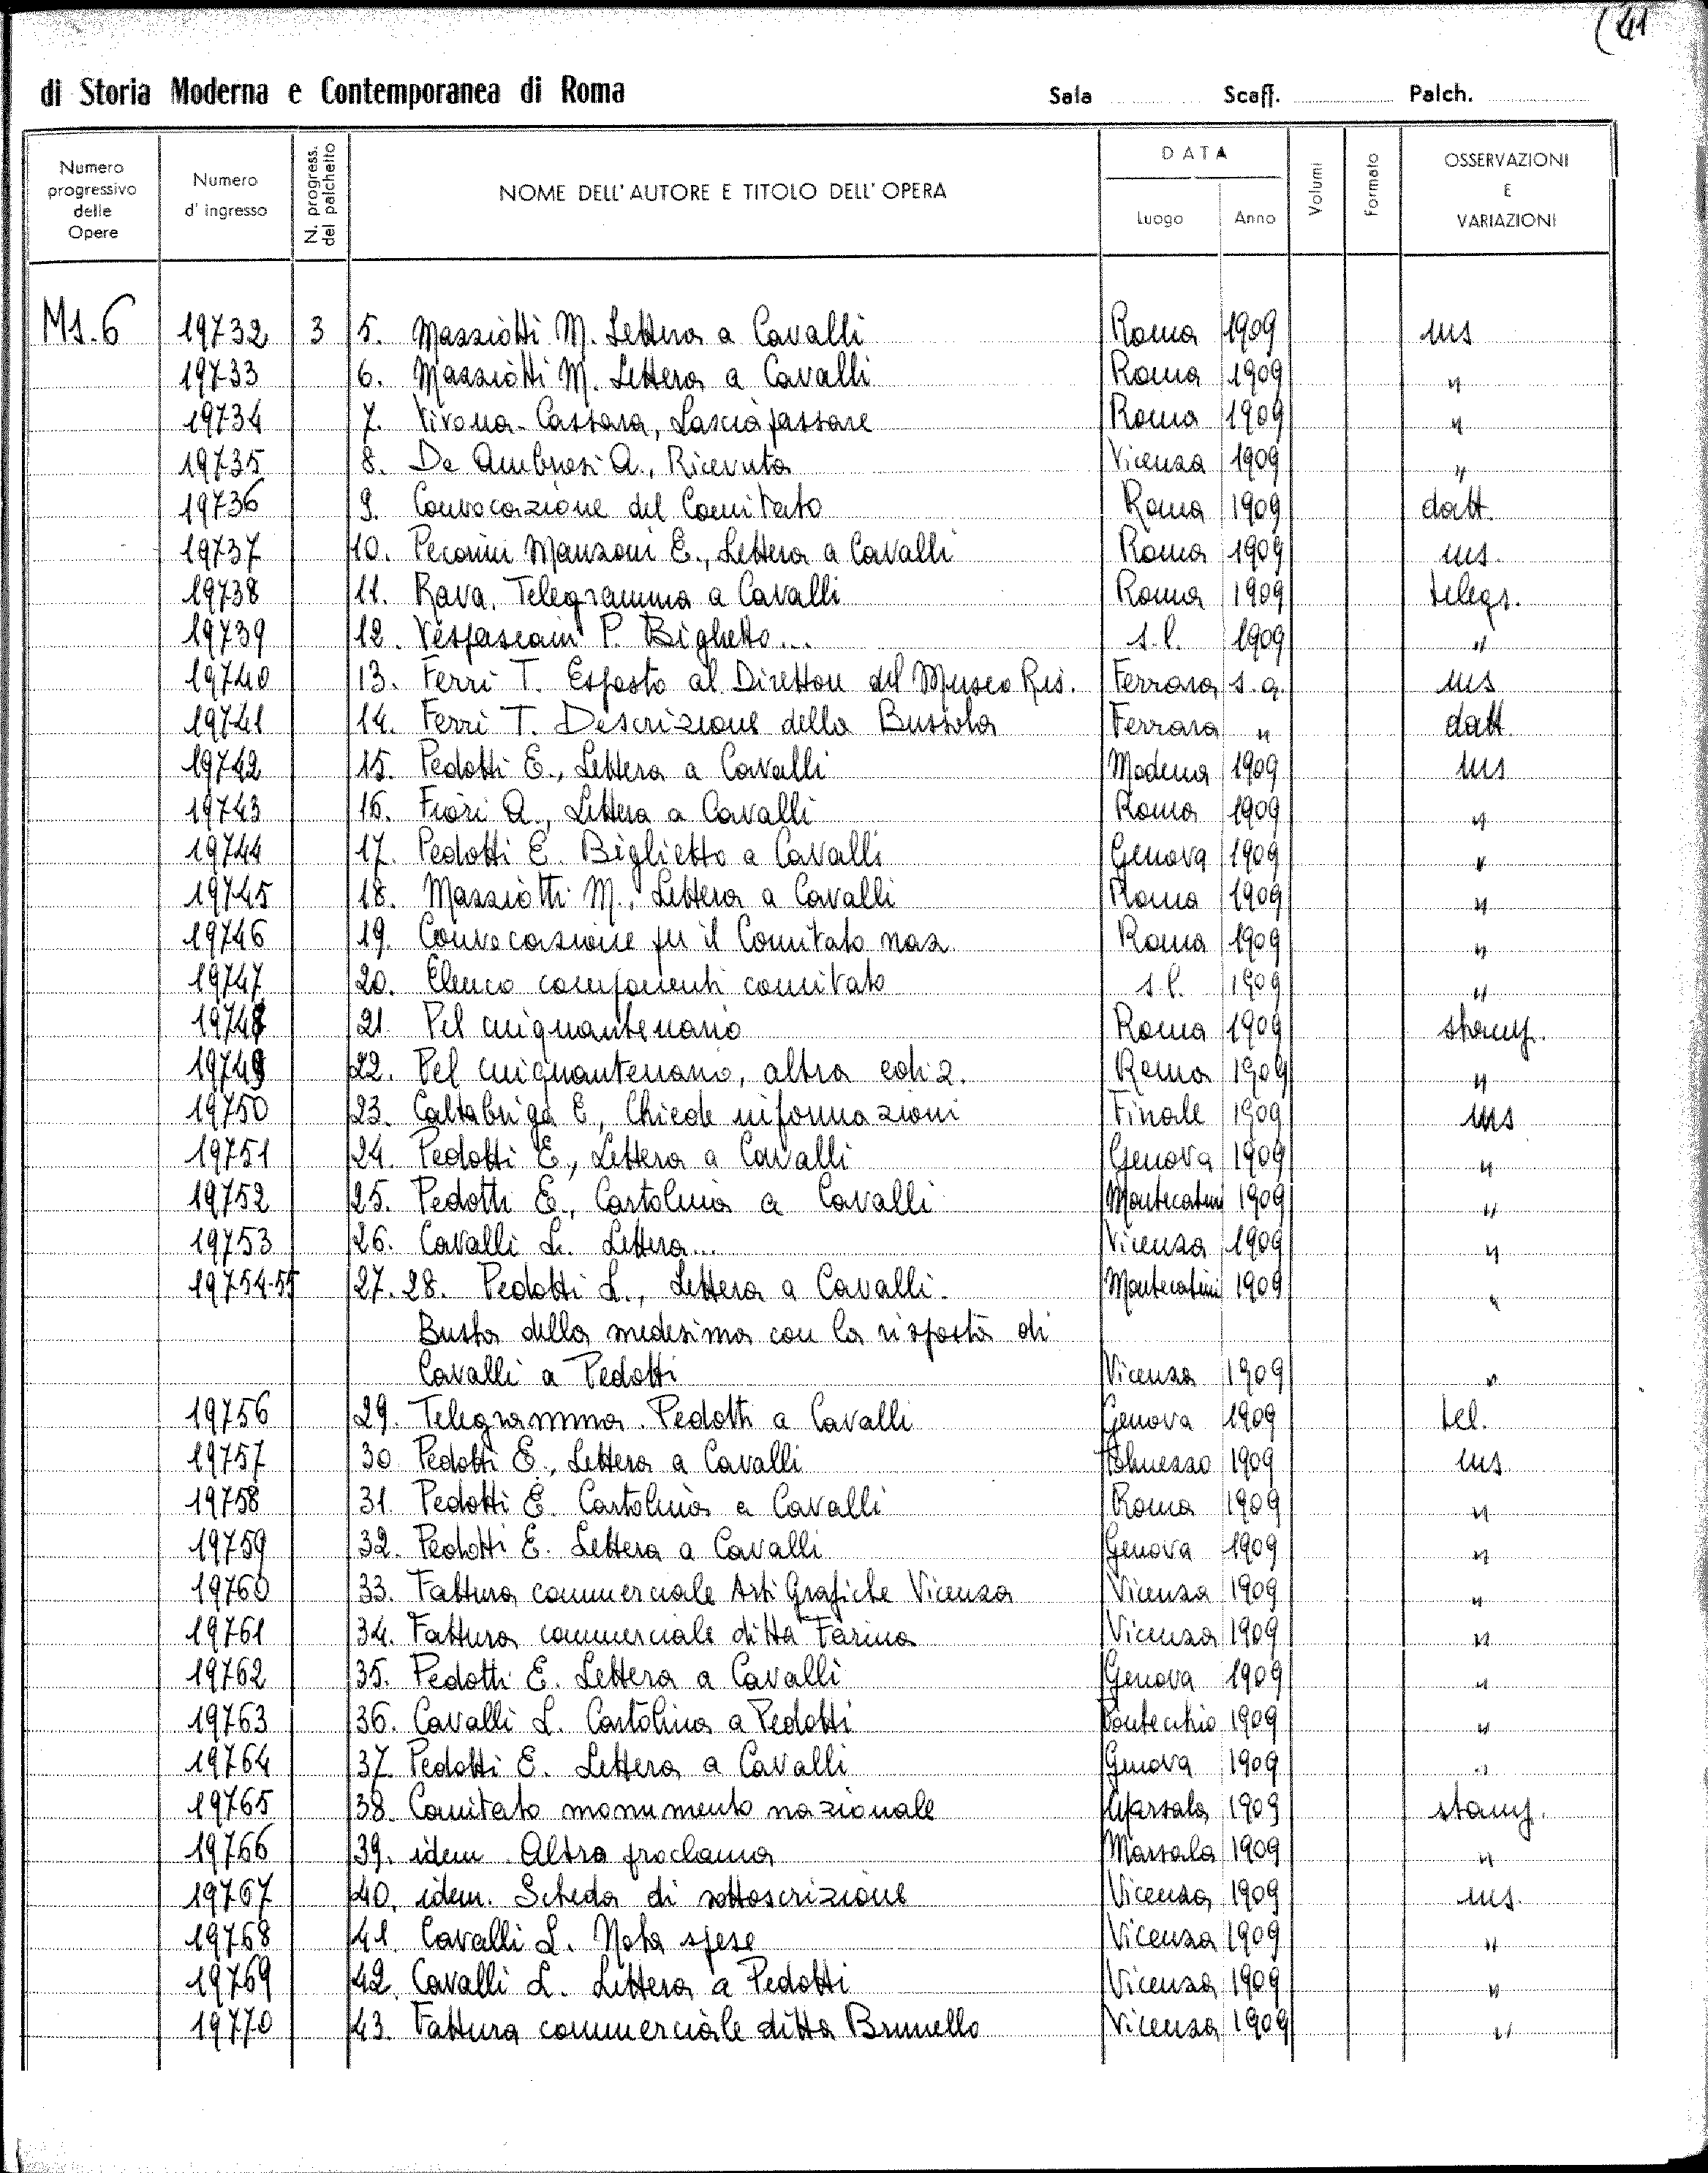 (41
di Storia Moderna e Contemporanea di Roma Sala Scaff. Palch.
Numero progressivo delle Opere Numero d' ingresso N. progress. del palchetto NOME DELL' AUTORE E TITOLO DELL' OPERA DATA Luogo Anno Volumi Formato OSSERVAZIONI E VARIAZIONI
Ms. 6 19732 3 5. Mazziotti M. Lettera a Cavalli Roma 1909 ms
19733 6. Mazziotti M. Lettera a Cavalli Roma 1909 "
19734 7. Vivona-Cassara, Lasciapassare Roma 1909 "
19735 8. De Ambrosi A., Ricevuta Vicenza 1909 "
19736 9. Convocazione del Comitato Roma 1909 datt.
19737 10. Pecorini Manzoni E., Lettera a Cavalli Roma 1909 ms.
19738 11. Rava. Telegramma a Cavalli Roma 1909 telegr.
19739 12. Vespasiani P. Biglietto... s.l. 1909 "
19740 13. Ferri T. Esposto al Direttore del Museo Ris. Ferrara s.a. ms
19741 14. Ferri T. Descrizione della Bussola Ferrara " datt
19742 15. Pedotti E., Lettera a Cavalli Modena 1909 ms
19743 16. Fiori A., Lettera a Cavalli Roma 1909 "
19744 17. Pedotti E. Biglietto a Cavalli Genova 1909 "
19745 18. Mazziotti M., Lettera a Cavalli Roma 1909 "
19746 19. Convocazione per il Comitato naz. Roma 1909 "
19747 20. Elenco componenti comitato s.l. 1909 "
19748 21. Pel cinquantenario Roma 1909 stamp.
19749 22. Pel cinquantenario, altra ediz. Roma 1909 "
19750 23. Caltabriga E., Chiede informazioni Finale 1909 ms
19751 24. Pedotti E., Lettera a Cavalli Genova 1909 "
19752 25. Pedotti E., Cartolina a Cavalli Montecatini 1909 "
19753 26. Cavalli L. Lettera... Vicenza 1909 "
19754-55 27.28. Pedotti L., Lettera a Cavalli. Montecatini 1909 "
Busta della medesima con la risposta di
Cavalli a Pedotti Vicenza 1909 "
19756 29. Telegramma. Pedotti a Cavalli Genova 1909 tel.
19757 30. Pedotti E., Lettera a Cavalli 1909 ms
19758 31. Pedotti E. Cartolina a Cavalli Roma 1909 "
19759 32. Pedotti E. Lettera a Cavalli Genova 1909 "
19760 33. Fattura commerciale Arti Grafiche Vicenza Vicenza 1909 "
19761 34. Fattura commerciale ditta Farina Vicenza 1909 "
19762 35. Pedotti E. Lettera a Cavalli Genova 1909 "
19763 36. Cavalli L. Cartolina a Pedotti Pontecchio 1909 "
19764 37. Pedotti E. Lettera a Cavalli Genova 1909 "
19765 38. Comitato monumento nazionale Marsala 1909 stamp.
19766 39. idem. Altro proclama Marsala 1909 "
19767 40. idem. Scheda di sottoscrizione Vicenza 1909 ms.
19768 41. Cavalli L. Nota spese Vicenza 1909 "
19769 42. Cavalli L. Lettera a Pedotti Vicenza 1909 "
19770 43. Fattura commerciale ditta Brunello Vicenza 1909 "